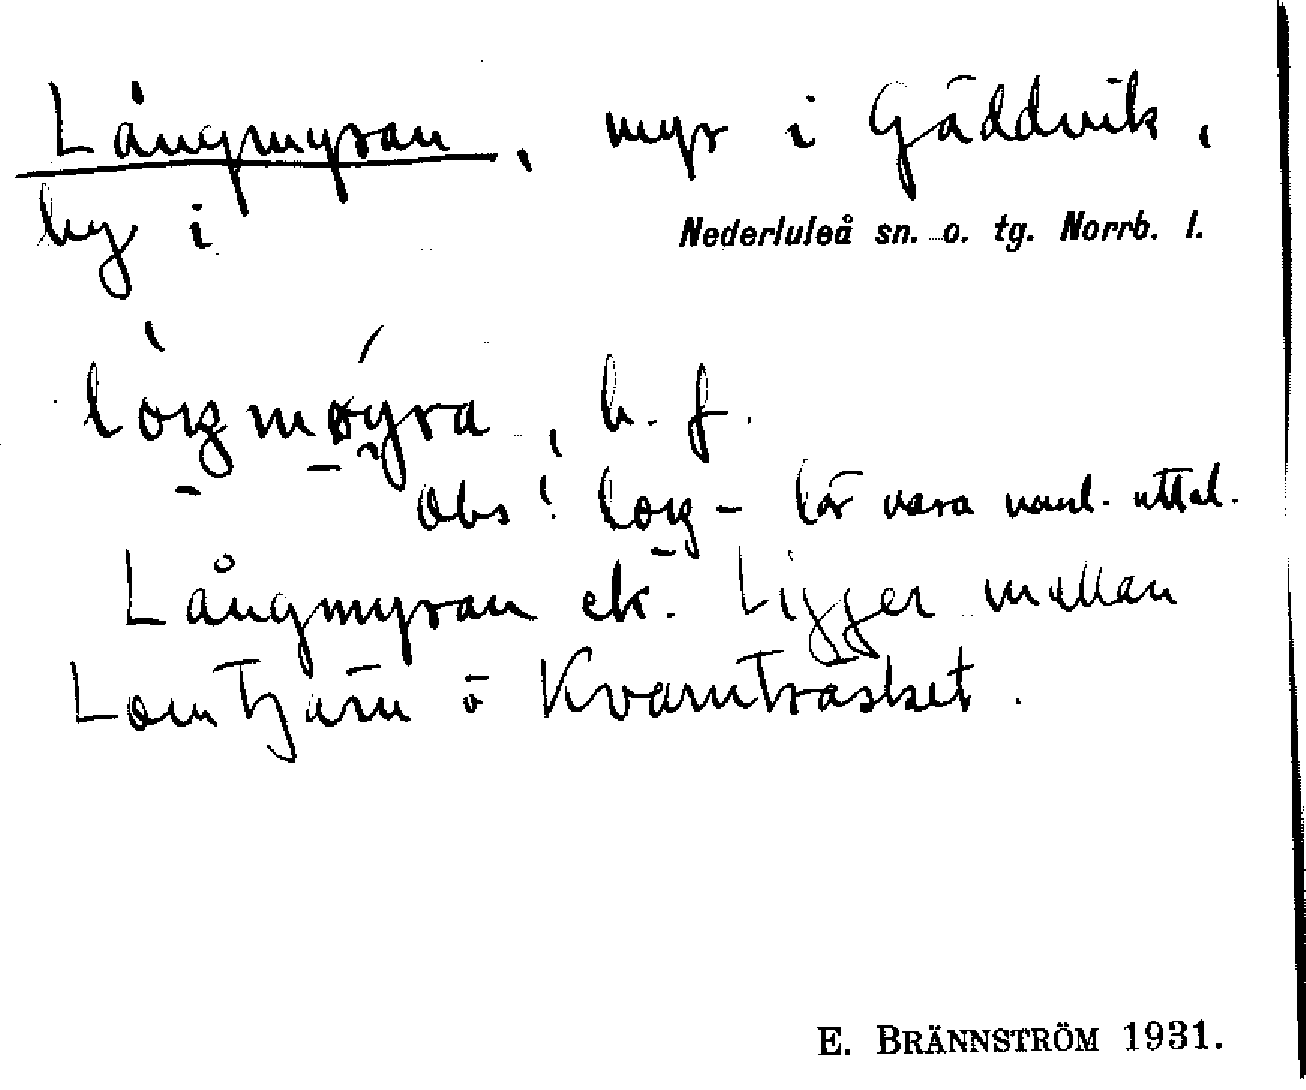 Långmyran, myr i Gäddvik,
by i Nederluleå sn. o. tg. Norrb. l.
lɔŋmøyra, b. f.
Obs! lɔŋ- lär vara vanl. uttal.
Långmyran ek. Ligger mellan
Lomtjärn o Kvarnträsket.
E. BRÄNNSTRÖM 1931.